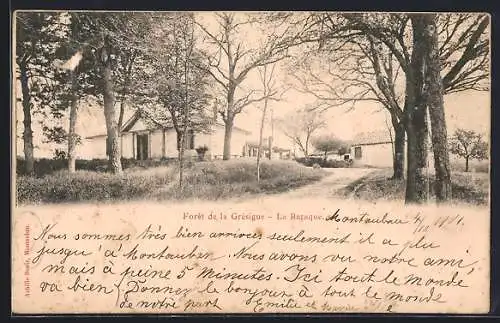 Forêt de la Grésigne - Le Rapaque.
Montauban 4/12 1901
Nous sommes très bien arrivés seulement il a plu
jusqu'à Montauban. Nous avons vu notre ami,
mais à peine 5 minutes. Ici tout le monde
va bien. Donnez le bonjour à tout le monde
de notre part Emilie et
Achille Bouis, Montauban.